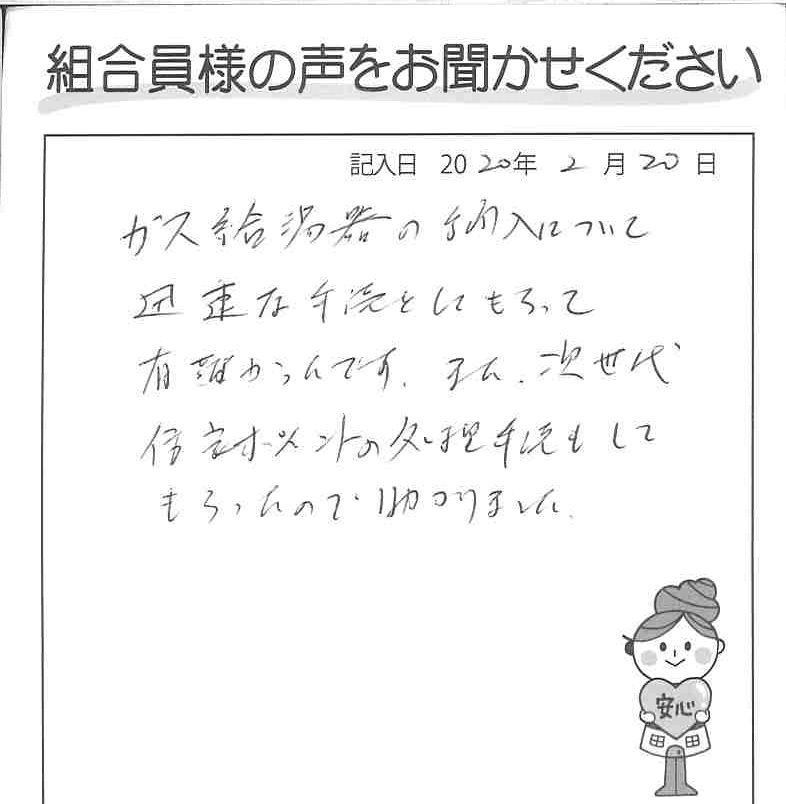 組合員様の声をお聞かせください
記入日 2020年 2月20日
ガス給湯器の納入について
迅速な手続をしてもらって
有難かったです。また、次世代
住宅ポイントの処理手続もして
もらったので助かりました。
安心